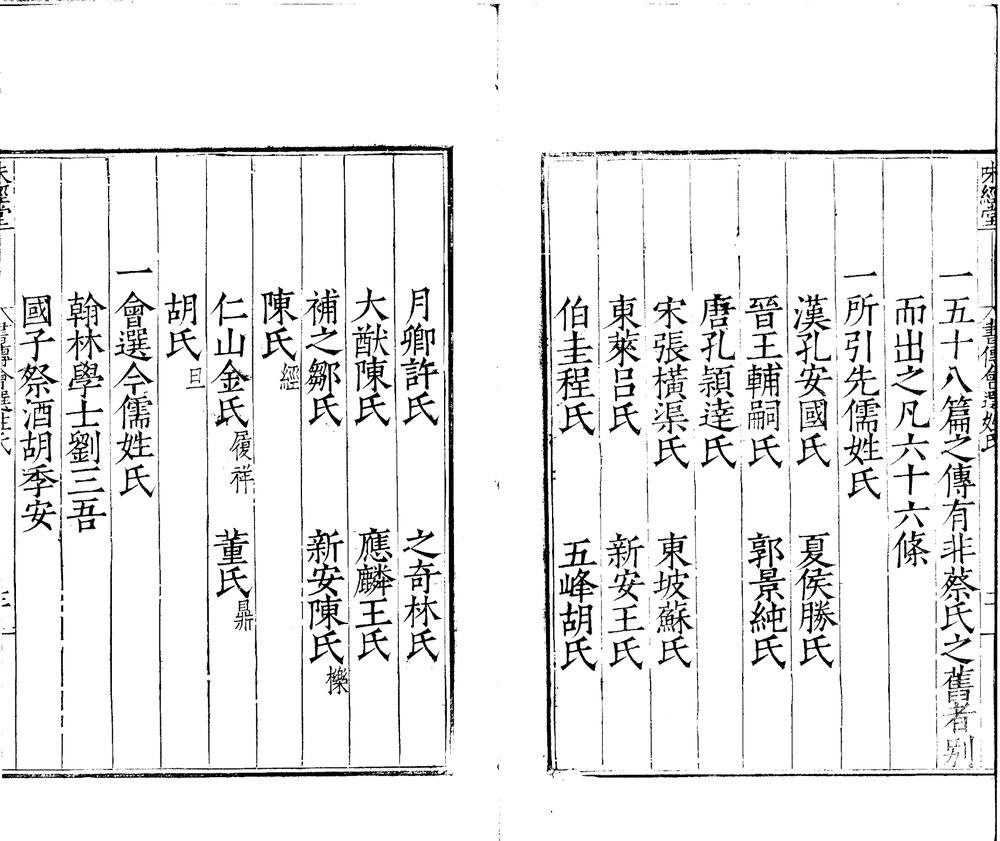 味經堂
書傳會選姓氏
一五十八篇之傳有非蔡氏之舊者別
而出之凡六十六條
一所引先儒姓氏
漢孔安國氏 夏侯勝氏
晉王輔嗣氏 郭景純氏
唐孔頴達氏
宋張橫渠氏 東坡蘇氏
東萊呂氏 新安王氏
伯圭程氏 五峰胡氏
月卿許氏 之奇林氏
大猷陳氏 應麟王氏
補之鄒氏 新安陳氏櫟
陳氏經
仁山金氏履祥 董氏鼎
胡氏旦
一會選今儒姓氏
翰林學士劉三吾
國子祭酒胡季安
味經堂